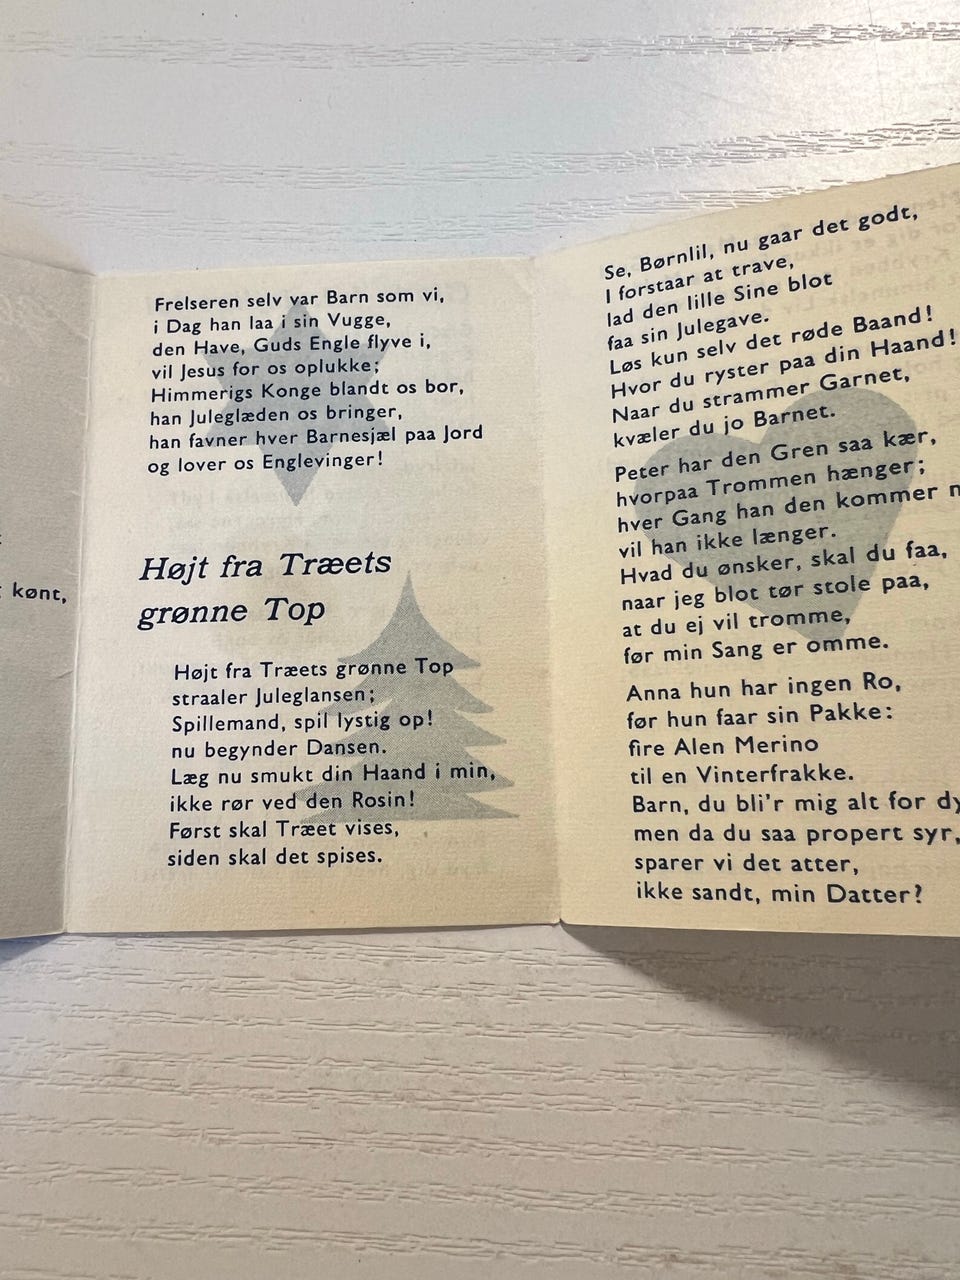 kønt,
Frelseren selv var Barn som vi,
i Dag han laa i sin Vugge,
den Have, Guds Engle flyve i,
vil Jesus for os oplukke;
Himmerigs Konge blandt os bor,
han Juleglæden os bringer,
han favner hver Barnesjæl paa Jord
og lover os Englevinger!
Højt fra Træets
grønne Top
Højt fra Træets grønne Top
straaler Juleglansen;
Spillemand, spil lystig op!
nu begynder Dansen.
Læg nu smukt din Haand i min,
ikke rør ved den Rosin!
Først skal Træet vises,
siden skal det spises.
Se, Børnlil, nu gaar det godt,
I forstaar at trave,
lad den lille Sine blot
faa sin Julegave.
Løs kun selv det røde Baand!
Hvor du ryster paa din Haand!
Naar du strammer Garnet,
kvæler du jo Barnet.
Peter har den Gren saa kær,
hvorpaa Trommen hænger;
hver Gang han den kommer
vil han ikke længer.
Hvad du ønsker, skal du faa,
naar jeg blot tør stole paa,
at du ej vil tromme,
før min Sang er omme.
Anna hun har ingen Ro,
før hun faar sin Pakke:
fire Alen Merino
til en Vinterfrakke.
Barn, du bli'r mig alt for
men da du saa propert syr,
sparer vi det atter,
ikke sandt, min Datter?